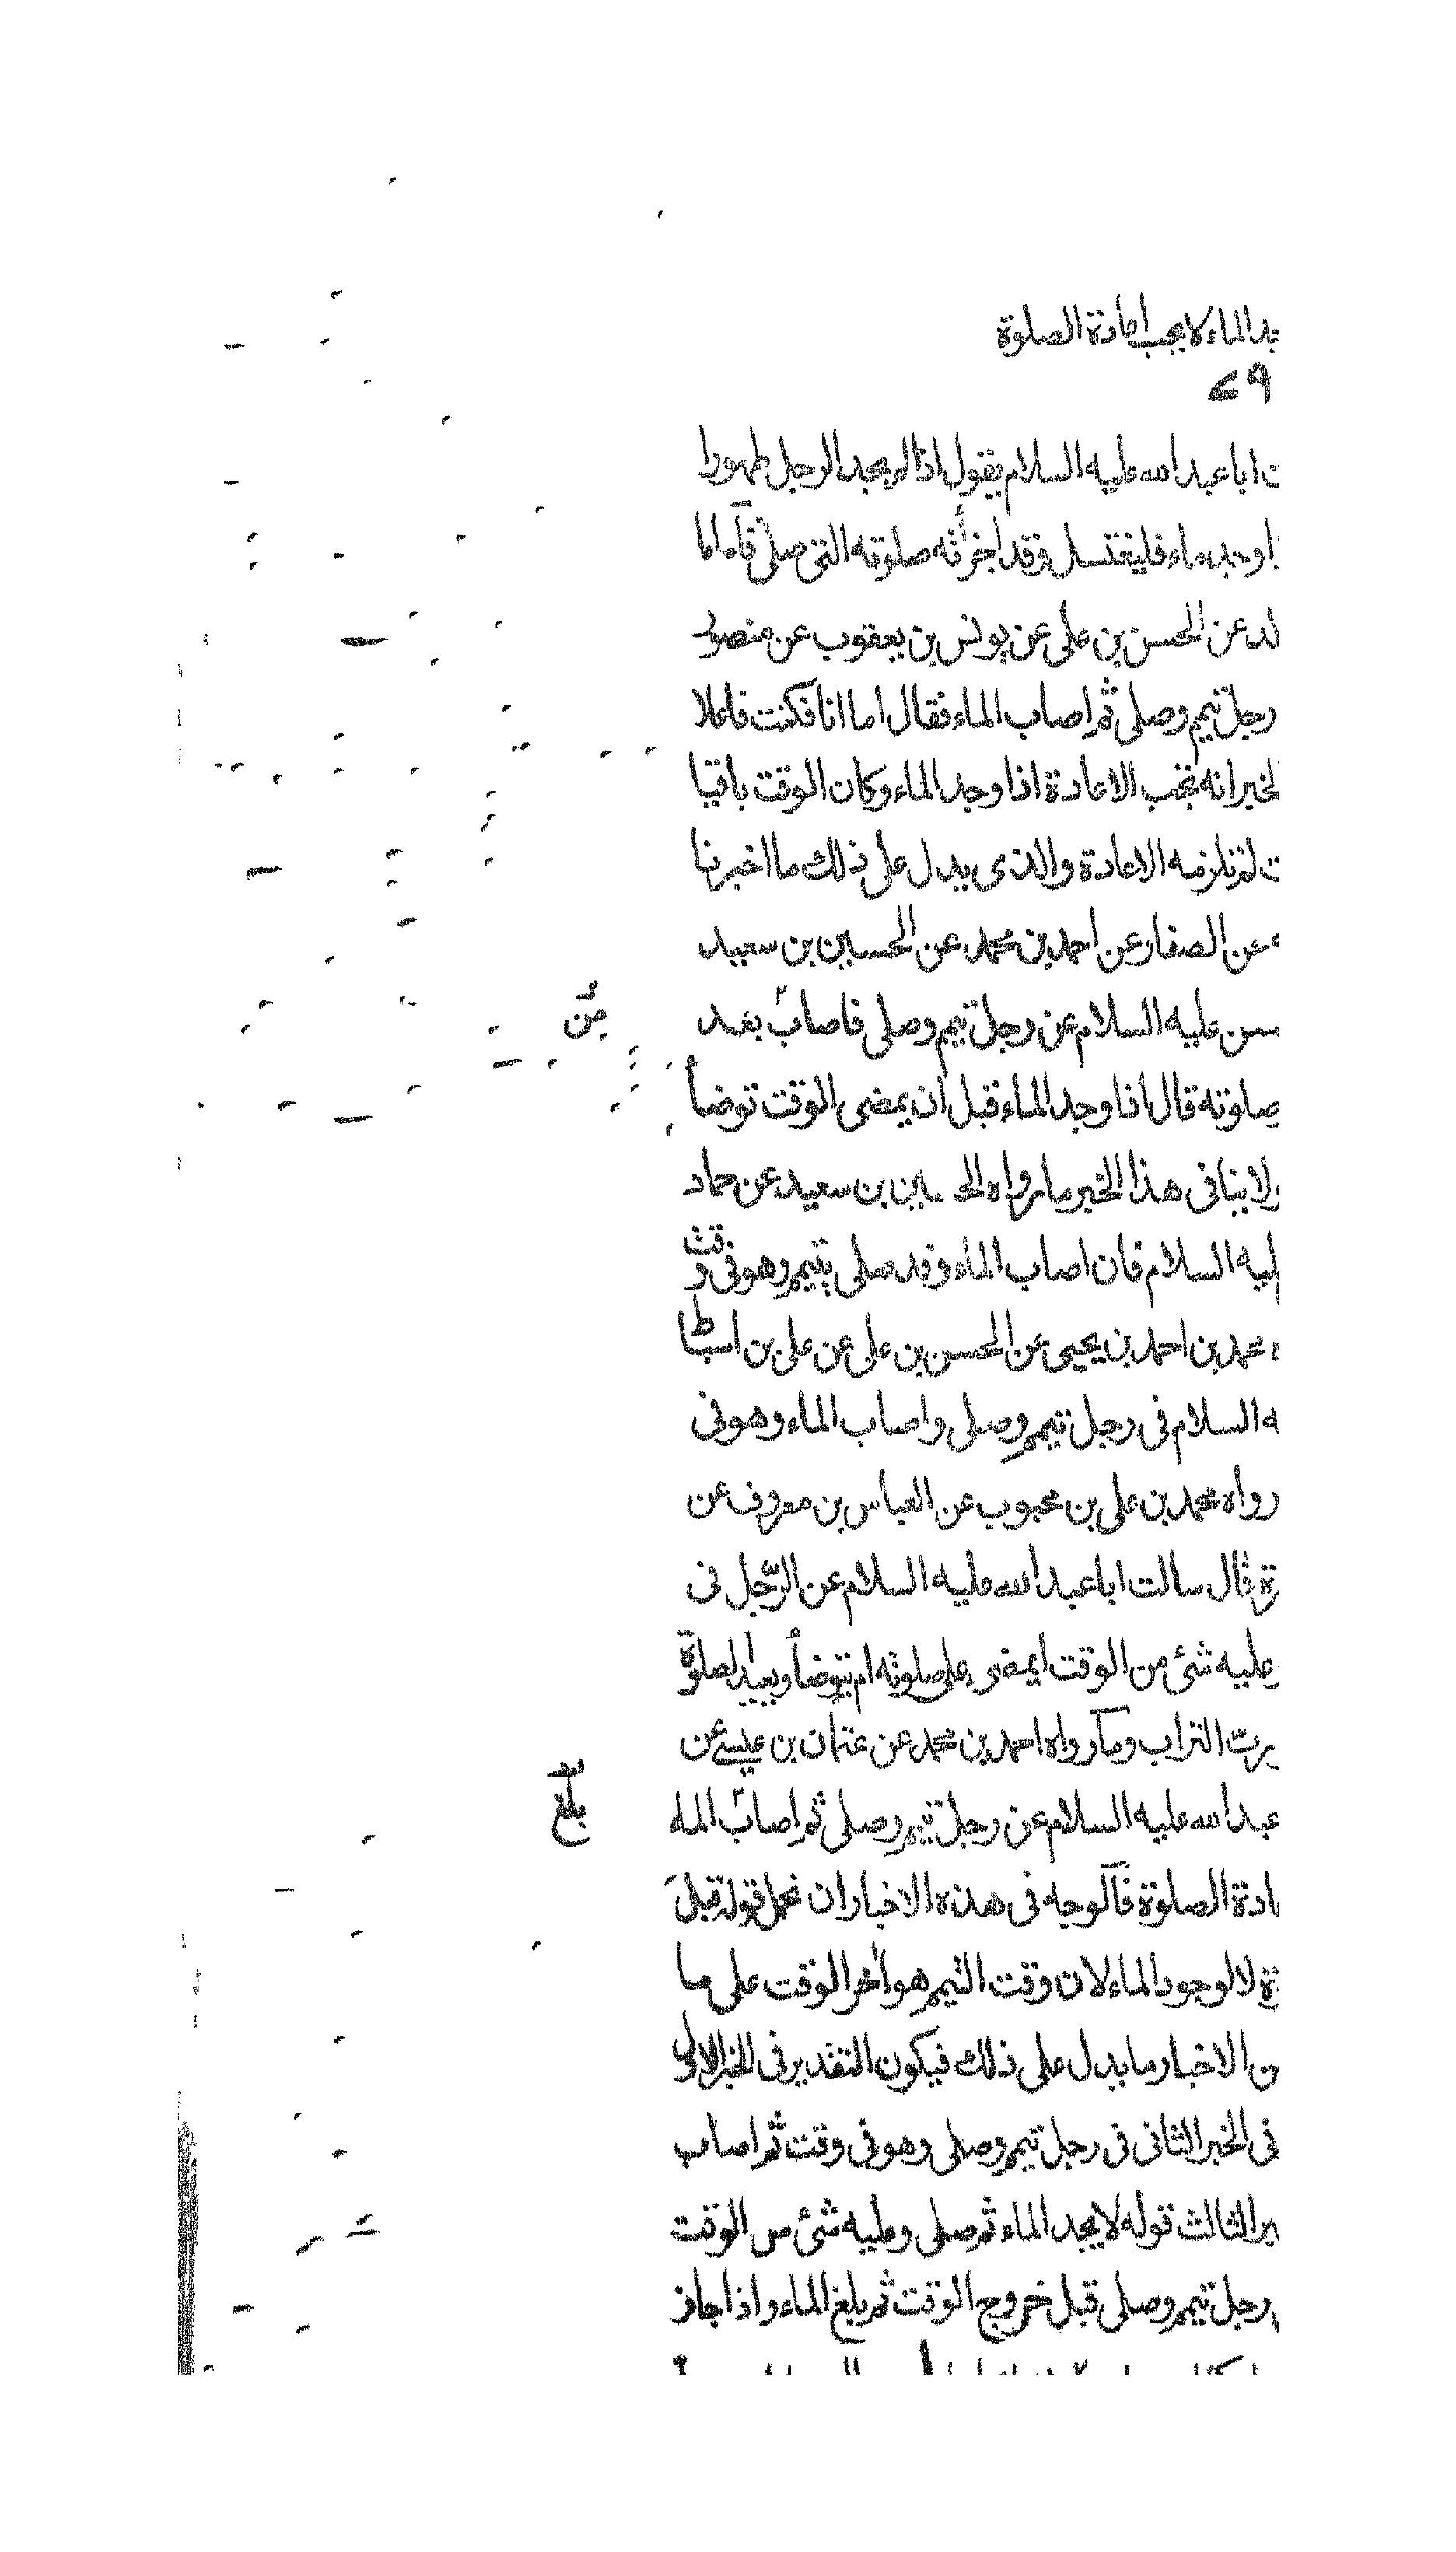 الماء لا يجب اعادة الصلوة
ابا عبد الله عليه السلام يقول اذا لم يجد الرجل طهورا
وجد ماء فليغتسل وقد اجزأته صلوته التى صلى فآما ما
عن الحسن بن على عن يونس بن يعقوب عن منصور
رجل تيمم وصلى ثم اصاب الماء فقال اما انا فكنت فاعلا
الخبر انه تجب الاعادة اذا وجد الماء وكان الوقت باقيا
لم تلزمه الاعادة والذى يدل على ذلك ما اخبرنا
عن الصفار عن احمد بن محمد عن الحسين بن سعيد
عليه السلام عن رجل تيمم وصلى فاصاب بعد
صلوته قال اذا وجد الماء قبل ان يمضى الوقت توضأ
ولا ينافى هذا الخبر ما رواه الحسين بن سعيد عن حماد
عليه السلام فان اصاب الماء وقد صلى بتيمم وهو فى وقت
محمد بن احمد بن يحيى عن الحسن بن على عن على بن اسباط
السلام فى رجل تيمم وصلى واصاب الماء وهو فى
رواه محمد بن على بن محبوب عن العباس بن معروف عن
قال سالت ابا عبد الله عليه السلام عن الرّجل فى
عليه شئ من الوقت ايمضى على صلوته ام يتوضأ ويعيد الصلوة
التراب ومآ رواه احمد بن محمد عن عثمان بن عيسى عن
عبد الله عليه السلام عن رجل تيمم وصلى ثم اصاب الماء
الصلوة فآلوجه فى هذه الاخبار ان نحمل قوله قبل
لا لوجود الماء لان وقت التيمم هو آخر الوقت على ما
الاخبار ما يدل على ذلك فيكون التقدير فى الخبر الاول
فى الخبر الثانى فى رجل تيمم وصلى وهو فى وقت ثم اصاب
الثالث قوله لا يجد الماء ثم صلى وعليه شئ من الوقت
رجل تيمم وصلى قبل خروج الوقت ثم بلغ الماء واذا جاز
بلغ